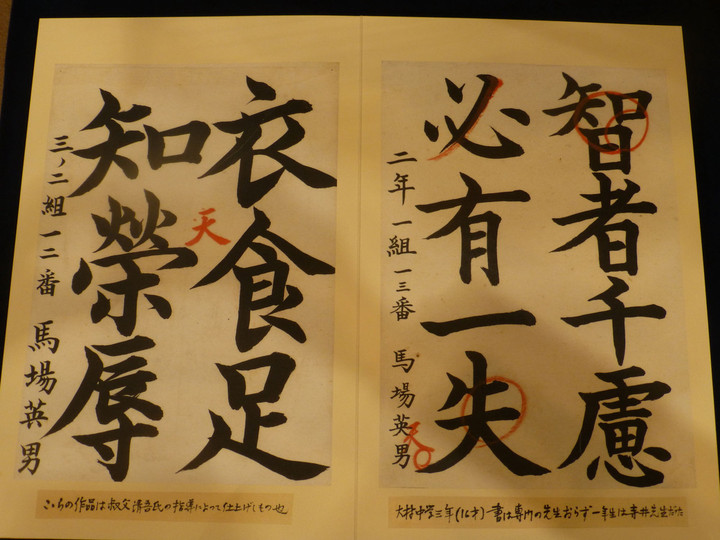 智者千慮
必有一失
二年一組一三番 馬場英男
天
大村中学三年(16才)一書は専門の先生おらず一年生は
衣食足
知榮辱
天
三ノ二組一二番 馬場英男
こちらの作品は叔父清吾氏の指導によって仕上げしもの也